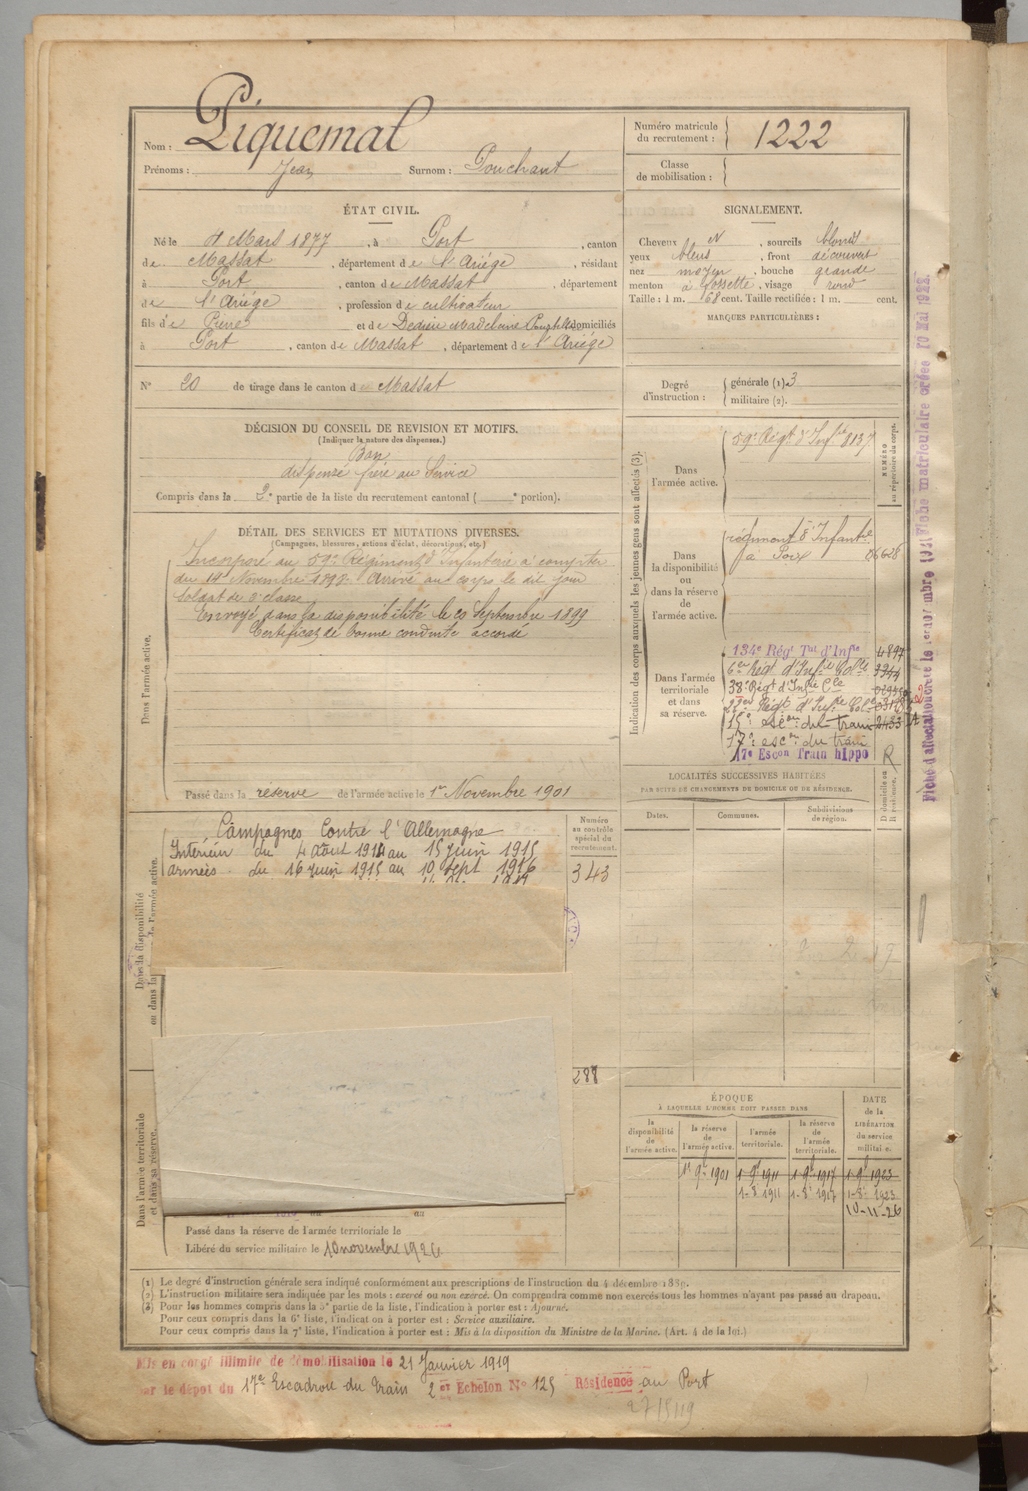 Nom : Piquemal
Prénoms : Jean Surnom : Pouchant
Numéro matricule du recrutement : 1222
Classe de mobilisation :
ÉTAT CIVIL.
Né le 4 Mars 1877, à Port, canton
de Massat, département de l'Ariége, résidant
à Port, canton de Massat, département
de l'Ariége, profession de cultivateur
fils de Pierre et de Dedieu Madelaine domiciliés
à Port, canton de Massat, département de l'Ariége
N° 20 de tirage dans le canton de Massat
SIGNALEMENT.
Cheveux et, sourcils blonds
yeux bleus, front découvert
nez moyen, bouche grande
menton à fossette, visage rond
Taille : 1 m. 68 cent. Taille rectifiée : 1 m. cent.
MARQUES PARTICULIÈRES :
Degré d'instruction : générale (1). 3
militaire (2).
DÉCISION DU CONSEIL DE REVISION ET MOTIFS.
(Indiquer la nature des dispenses.)
Bon
dispensé frère au Service
Compris dans la 2e partie de la liste du recrutement cantonal ( e portion).
DÉTAIL DES SERVICES ET MUTATIONS DIVERSES.
(Campagnes, blessures, actions d'éclat, décorations, etc.)
Dans l'armée active.
Incorporé au 59e Régiment d'Infanterie à compter
du 14 Novembre 1898. Arrivé au corps le dit jour
Soldat de 2e classe
Envoyé dans la disponibilité le 20 Septembre 1899
Certificat de bonne conduite accordé
Passé dans la réserve de l'armée active le 1er Novembre 1901
Indication des corps auxquels les jeunes gens sont affectés (3).
NUMÉRO au répertoire du corps.
Dans l'armée active.
59e Régt d'Infie 8137
Dans la disponibilité ou dans la réserve de l'armée active.
régiment d'Infantie
à Foix 06628
Dans l'armée territoriale et dans sa réserve.
134e Régt Tal d'Infie 4897
6e Régt d'Infie Colle 3344
38e Régt d'Infie Cle
22e Régt d'Infie Cole
15e escon du train 2433
17e escon du train
17e Escon Train hippo R
Fiche d'affectation créée le 1er novembre Fiche matriculaire créée 10 Mai 1922.
LOCALITÉS SUCCESSIVES HABITÉES
PAR SUITE DE CHANGEMENTS DE DOMICILE OU DE RÉSIDENCE.
Dates. Communes. Subdivisions de région. D domicile ou R résidence.
Dans la disponibilité ou dans la réserve de l'armée active.
Campagnes Contre l'Allemagne
Intérieur du 4 août 1914 au 15 juin 1915
armées. du 16 juin 1915 au 10 sept 1916
Numéro au contrôle spécial du recrutement.
343
288
Dans l'armée territoriale et dans sa réserve.
Passé dans la réserve de l'armée territoriale le
Libéré du service militaire le 10 novembre 1926
ÉPOQUE
À LAQUELLE L'HOMME DOIT PASSER DANS
la disponibilité de l'armée active. la réserve de l'armée active. l'armée territoriale. la réserve de l'armée territoriale. DATE de la LIBÉRATION du service militaire.
1er 9bre 1901 1-9bre 1911 1-9bre 1917 1-9bre 1923
1-8bre 1911 1-8bre 1917 1-8bre 1923
10-11-26
(1) Le degré d'instruction générale sera indiqué conformément aux prescriptions de l'instruction du 4 décembre 1889.
(2) L'instruction militaire sera indiquée par les mots : exercé ou non exercé. On comprendra comme non exercés tous les hommes n'ayant pas passé au drapeau.
(3) Pour les hommes compris dans la 5e partie de la liste, l'indication à porter est : Ajourné.
Pour ceux compris dans la 6e liste, l'indication à porter est : Service auxiliaire.
Pour ceux compris dans la 7e liste, l'indication à porter est : Mis à la disposition du Ministre de la Marine. (Art. 4 de la loi.)
Mis en congé illimité de démobilisation le 21 Janvier 1919
par le dépôt du 17e Escadron du Train 2e Echelon N° 125 Résidence au Port
27/5/19